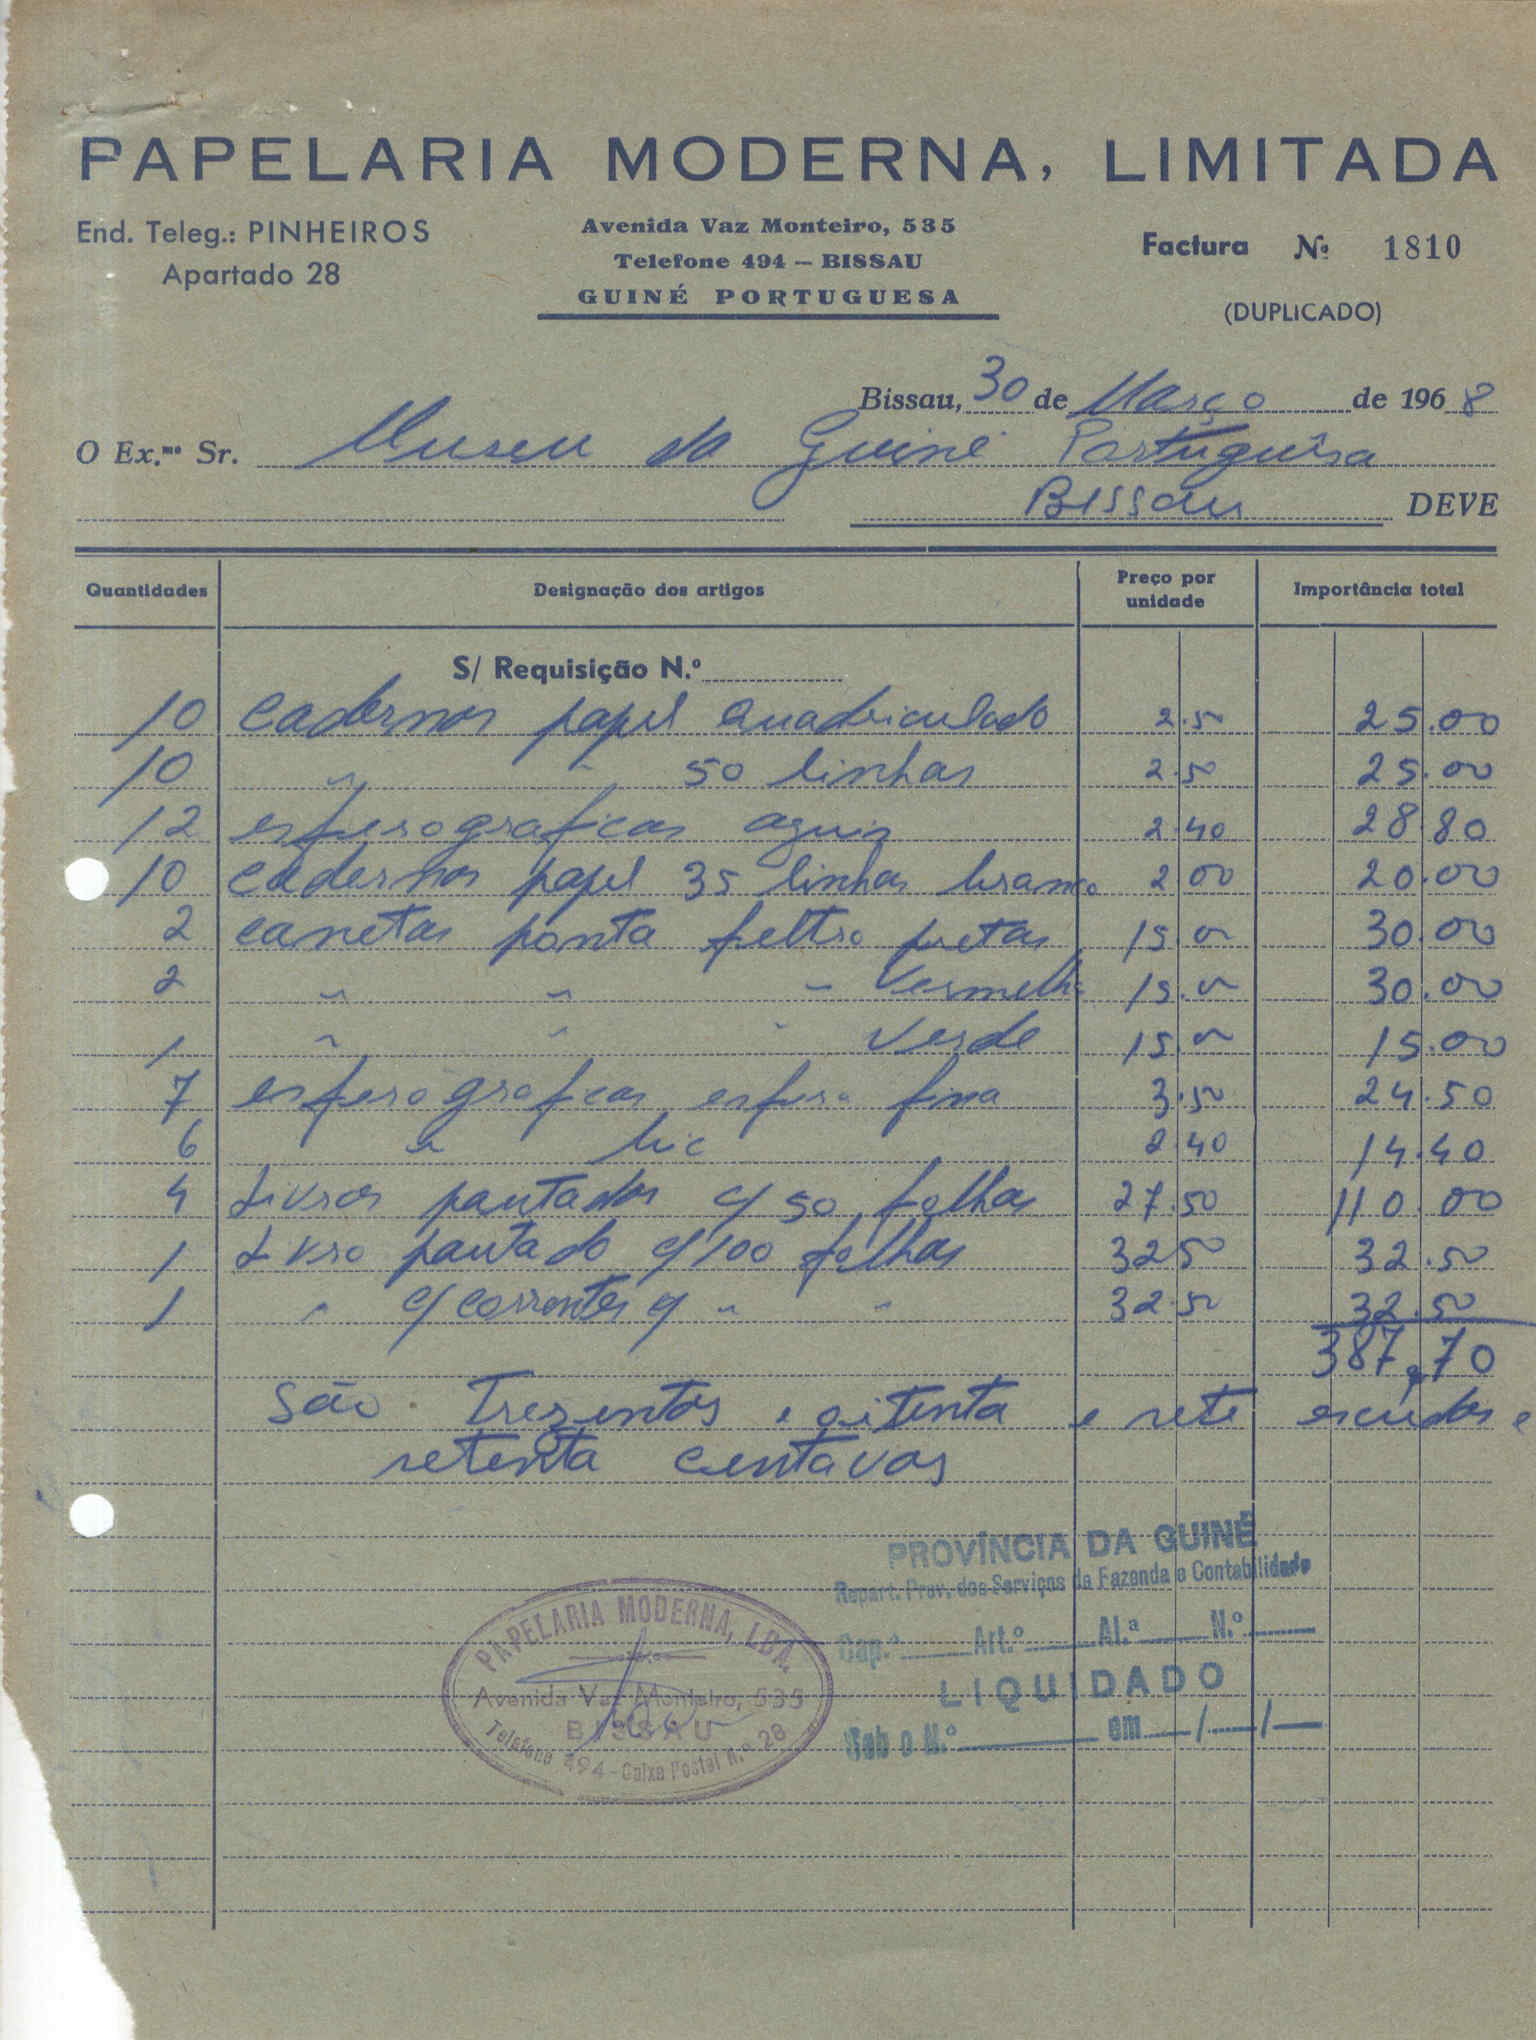 PAPELARIA MODERNA, LIMITADA
End. Teleg.: PINHEIROS
Apartado 28
Avenida Vaz Monteiro, 535
Telefone 494 — BISSAU
GUINÉ PORTUGUESA
Factura Nº 1810
(DUPLICADO)
Bissau, 30 de Março de 1968
O Ex.mo Sr. Museu da Guiné Portuguêsa
Bissau DEVE
Quantidades Designação dos artigos Preço por unidade Importância total
S/ Requisição N.º
10 cadernos papel quadriculado 2.50 25.00
10 " " 50 linhas 2.50 25.00
12 esferograficas aguia 2.40 28.80
10 cadernos papel 35 linhas branco 2.00 20.00
2 canetas ponta feltro pretas 15.00 30.00
2 " " " Vermelha 15.00 30.00
1 " " " Verde 15.00 15.00
7 esferograficas esfera fina 3.50 24.50
6 " bic 2.40 14.40
4 Livros pautados c/ 50 folhas 27.50 110.00
1 Livro pautado c/ 100 folhas 32.50 32.50
1 " c/ correntes c/ " " 32.50 32.50
387,70
São Trezentos e oitenta e sete escudos e
setenta centavos
PROVÍNCIA DA GUINÉ
Repart. Prov. dos Serviços da Fazenda e Contabilidade
Cap.º Art.º Al.ª N.º
LIQUIDADO
Sob o N.º em / /
PAPELARIA MODERNA, LDA.
Avenida Vaz Monteiro, 535
BISSAU
Telefone 494 - Caixa Postal N.º 28